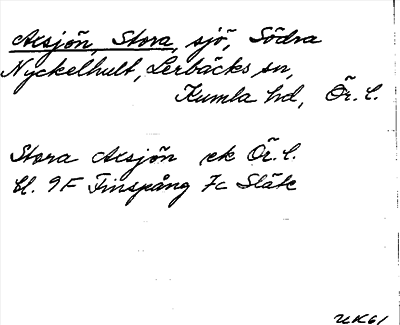 Axsjön, Stora, sjö, Södra
Nyckelhult, Lerbäcks sn,
Kumla hd, Ör. l.
Stora Axsjön ek Ör. l.
bl. 9F Finspång 7c Släte
UK61